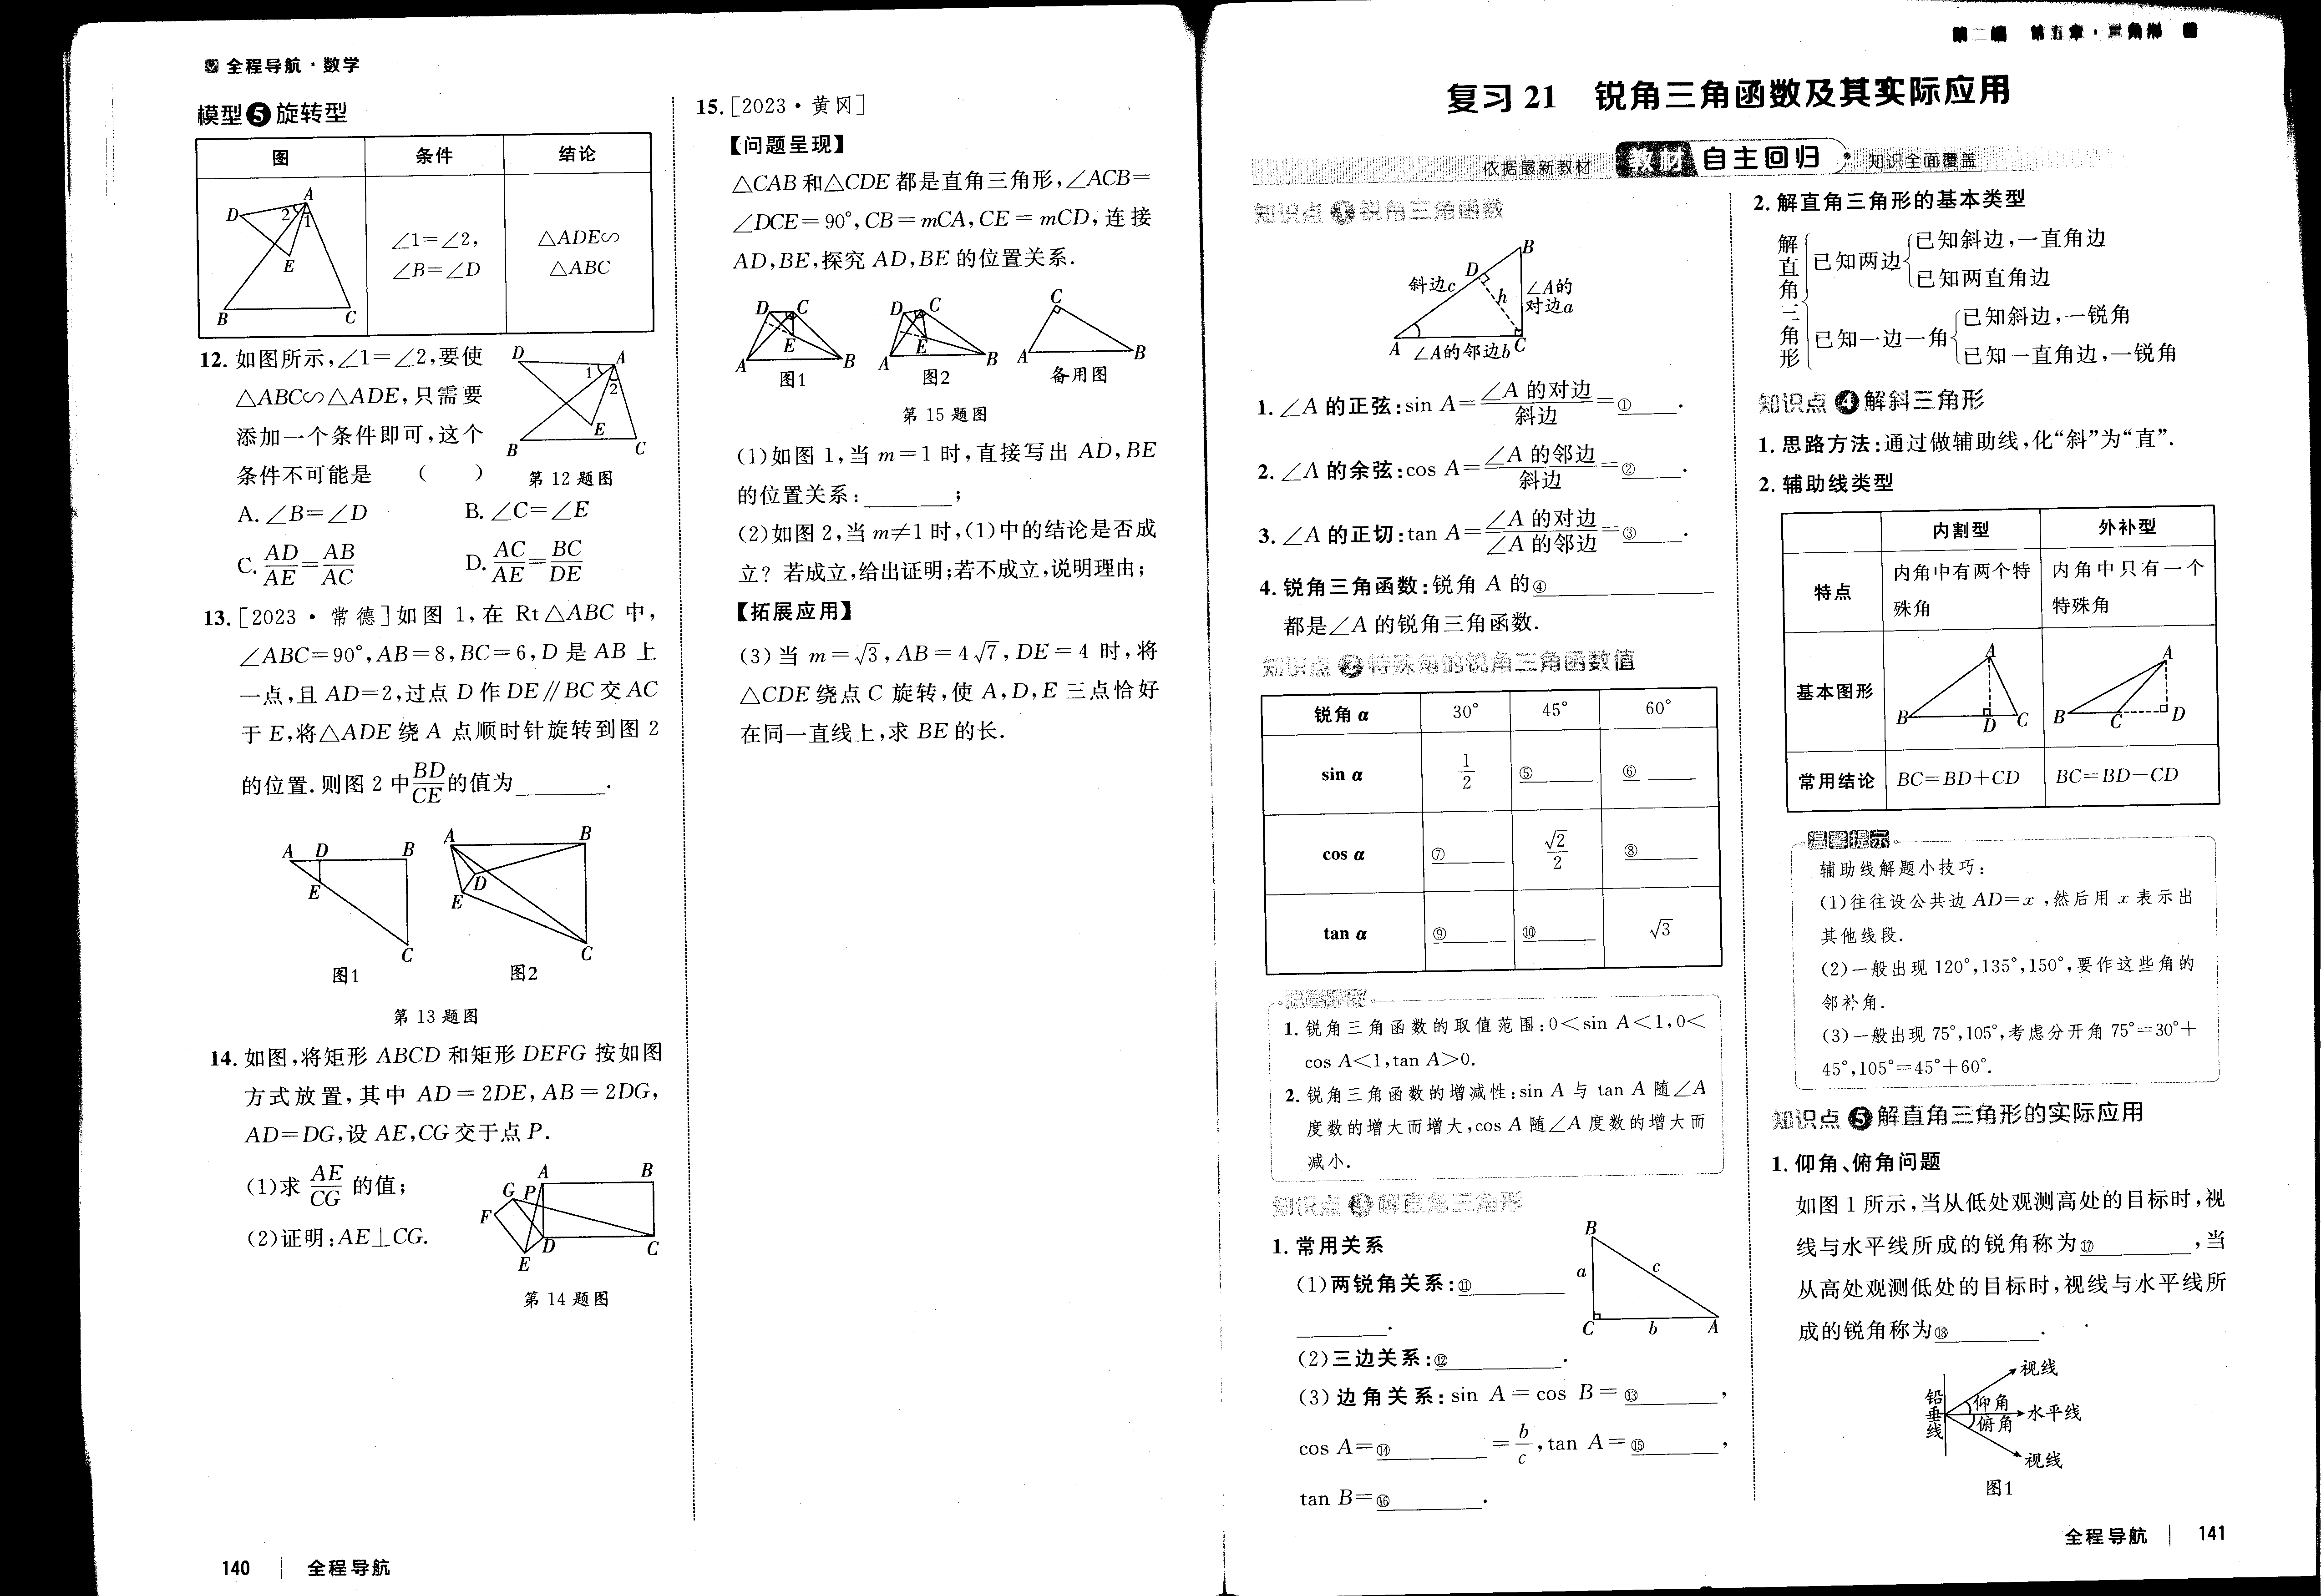 全程导航·数学
模型❺旋转型
图 条件 结论
A
D 2 1
E
B C
∠1=∠2,
∠B=∠D
△ADE∽
△ABC
12. 如图所示,∠1=∠2,要使
△ABC∽△ADE,只需要
添加一个条件即可,这个
条件不可能是 ( )
D A
1
2
E
B C
第12题图
A. ∠B=∠D B. ∠C=∠E
C. AD/AE=AB/AC D. AC/AE=BC/DE
13. [2023·常德]如图1,在Rt△ABC中,
∠ABC=90°,AB=8,BC=6,D是AB上
一点,且AD=2,过点D作DE∥BC交AC
于E,将△ADE绕A点顺时针旋转到图2
的位置.则图2中BD/CE的值为________.
A D B
E
C
图1
A B
D
E
C
图2
第13题图
14. 如图,将矩形ABCD和矩形DEFG按如图
方式放置,其中AD=2DE,AB=2DG,
AD=DG,设AE,CG交于点P.
(1)求AE/CG的值;
(2)证明:AE⊥CG.
A B
G P
F
D C
E
第14题图
140 | 全程导航
15. [2023·黄冈]
【问题呈现】
△CAB和△CDE都是直角三角形,∠ACB=
∠DCE=90°,CB=mCA,CE=mCD,连接
AD,BE,探究AD,BE的位置关系.
D C
E
A B
图1
D C
E
A B
图2
C
A B
备用图
第15题图
(1)如图1,当m=1时,直接写出AD,BE
的位置关系:________;
(2)如图2,当m≠1时,(1)中的结论是否成
立?若成立,给出证明;若不成立,说明理由;
【拓展应用】
(3)当m=√3,AB=4√7,DE=4时,将
△CDE绕点C旋转,使A,D,E三点恰好
在同一直线上,求BE的长.
第二编 第五章·三角形
复习21 锐角三角函数及其实际应用
依据最新教材 教材 自主回归 知识全面覆盖
知识点❶锐角三角函数
B
D
斜边c
h
∠A的
对边a
A ∠A的邻边b C
1. ∠A的正弦:sin A=∠A的对边/斜边=①____.
2. ∠A的余弦:cos A=∠A的邻边/斜边=②____.
3. ∠A的正切:tan A=∠A的对边/∠A的邻边=③____.
4. 锐角三角函数:锐角A的④________________
都是∠A的锐角三角函数.
知识点❷特殊角的锐角三角函数值
锐角α 30° 45° 60°
sin α 1/2 ⑤______ ⑥______
cos α ⑦______ √2/2 ⑧______
tan α ⑨______ ⑩______ √3
温馨提示
1. 锐角三角函数的取值范围:0<sin A<1,0<
cos A<1,tan A>0.
2. 锐角三角函数的增减性:sin A与tan A随∠A
度数的增大而增大,cos A随∠A度数的增大而
减小.
知识点❸解直角三角形
1. 常用关系
(1)两锐角关系:⑪________
________.
(2)三边关系:⑫________.
(3)边角关系:sin A=cos B=⑬________,
cos A=⑭________=b/c,tan A=⑮________,
tan B=⑯________.
B
a c
C b A
2. 解直角三角形的基本类型
解直角三角形
已知两边
已知斜边,一直角边
已知两直角边
已知一边一角
已知斜边,一锐角
已知一直角边,一锐角
知识点❹解斜三角形
1. 思路方法:通过做辅助线,化“斜”为“直”.
2. 辅助线类型
内割型 外补型
特点 内角中有两个特殊角 内角中只有一个特殊角
基本图形
A
B D C
A
B C D
常用结论 BC=BD+CD BC=BD−CD
温馨提示
辅助线解题小技巧:
(1)往往设公共边AD=x,然后用x表示出
其他线段.
(2)一般出现120°,135°,150°,要作这些角的
邻补角.
(3)一般出现75°,105°,考虑分开角75°=30°+
45°,105°=45°+60°.
知识点❺解直角三角形的实际应用
1. 仰角、俯角问题
如图1所示,当从低处观测高处的目标时,视
线与水平线所成的锐角称为⑰________,当
从高处观测低处的目标时,视线与水平线所
成的锐角称为⑱________.
视线
铅垂线
仰角
水平线
俯角
视线
图1
全程导航 | 141